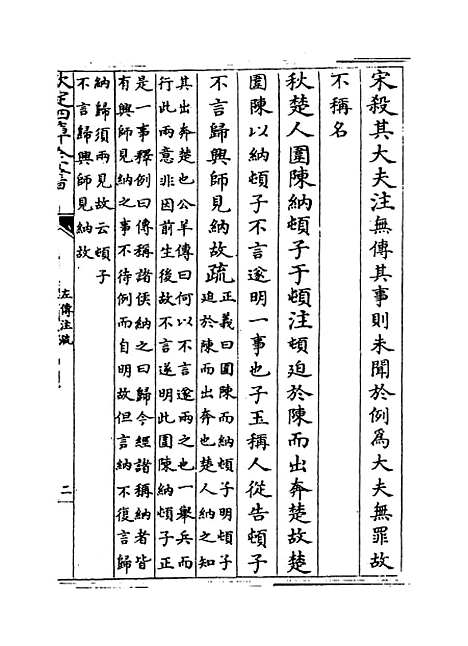 宋殺其大夫注無傳其事則未聞於例為大夫無罪故
不稱名
秋楚人圍陳納頓子于頓注頓迫於陳而出奔楚故楚
圍陳以納頓子不言遂明一事也子玉稱人從告頓子
不言歸興師見納故疏正義曰圍陳而納頓子明頓子
迫於陳而出奔也楚人納之知
其出奔楚也公羊傳曰何以不言遂兩之也一舉兵而
行此兩意非因前生後故不言遂明此圍陳納頓子正
是一事釋例曰傳稱諸侯納之曰歸今經諸稱納者皆
有興師見納之事不待例而自明故但言納不復言歸
納歸須兩見故云頓子
不言歸興師見納故
欽定四庫全書
左傳注疏
二